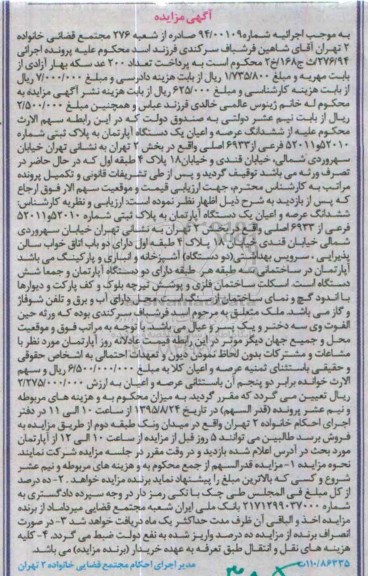 آگهی مزایده
به موجب اجرائیه شماره ۹۴/۰۰۱۰۹ صادره از شعبه ۲۷۶ مجتمع قضائی خانواده
۲ تهران آقای شاهین فرشباف سرکندی فرزند اسد محکوم علیه پرونده اجرائی
۲۷۶/۹۴/ت ج/۱۶۸/خ۲ محکوم است به پرداخت تعداد ۲۰۰ عدد سکه بهار آزادی از
بابت مهریه و مبلغ ۱/۷۳۵/۸۰۰ ریال از بابت هزینه دادرسی و مبلغ ۷/۰۰۰/۰۰۰ ریال
از بابت هزینه کارشناسی و مبلغ ۶۲۵/۰۰۰ ریال از بابت هزینه نشر آگهی مزایده به
محکوم له خانم ژینوس عالمی خالدی فرزند عباس و همچنین مبلغ ۲/۵۰۰/۰۰۰
ریال از بابت نیم عشر دولتی به صندوق دولت که در این رابطه سهم الارث
محکوم علیه از ششدانگ عرصه و اعیان یک دستگاه آپارتمان به پلاک ثبتی شماره
۵۲۰۱۰و۵۲۰۱۱ فرعی از ۶۹۳۳ اصلی واقع در بخش ۲ تهران به نشانی تهران خیابان
سهروردی شمالی، خیابان قندی و خیابان ۱۸ پلاک ۴ طبقه اول که در حال حاضر در
تصرف ورثه می باشد توقیف گردید و پس از طی تشریفات قانونی و تکمیل پرونده
مراتب به کارشناس محترم، جهت ارزیابی قیمت و موقعیت سهم الار فوق ارجاع
که پس از بازدید به شرح ذیل اظهار نظر نموده است: ارزیابی و نظریه کارشناس:
ششدانگ عرصه و اعیان یک دستگاه آپارتمان به پلاک ثبتی شماره ۵۲۰۱۰و۵۲۰۱۱
فرعی از ۶۹۳۳ اصلی واقع در بخش ۲ تهران به نشانی تهران خیابان سهروردی
شمالی خیابان قندی خیابان ۱۸ پلاک ۴ طبقه اول دارای دو باب اتاق خواب سالن
پذیرایی، سرویس بهداشتی (دو دستگاه) آشپزخانه و انباری و پارکینگ می باشد
آپارتمان در ساختمانی سه طبقه هر طبقه دارای دو دستگاه آپارتمان و جمعا شش
دستگاه است. اسکلت ساختمان فلزی و پوشش تیرچه بلوک و کف پارکت و دیوارها
با اندود گچ و نمای ساختمان از سنگ است محل دارای آب و برق و تلفن شوفاژ
و گاز می باشد. ملک متعلق به مرحوم اسد فرشباف سرکندی بوده که ورثه حین
الفوت وی سه دختر و یک پسر و عیال می باشد. با توجه به مراتب فوق و موقعیت
محل و جمیع جهان دیگر موثر در این رابطه قیمت عادلانه روز آپارتمان مورد نظر با
مشاعات و مشترکات بدون لحاظ نمودن دیون و تعهدات احتمالی به اشخاص حقوقی
و حقیقی باستثنای ثمنیه عرصه و اعیان کلا به مبلغ ۶/۵۰۰/۰۰۰/۰۰۰ ریال و سهم
الارث خوانده برابر دو پنجم آن باستثنائی عرصه و اعیان به ارزش ۲/۲۷۵/۰۰۰/۰۰۰
ریال تعیین می گردد که مقرر گردید به میزان محکوم به و هزینه های مربوطه
و نیم عشر پرونده (قدر السهم) در تاریخ ۱۳۹۵/۸/۲۴ از ساعت ۱۰ الی ۱۱ در دفتر
اجرای احکام خانواده ۲ تهران واقع در میدان ونک طبقه دوم از طریق مزایده به
فروش برسد طالبین می توانند ۵ روز قبل از مزایده از ساعت ۱۰ الی ۱۲ از آپارتمان
مورد بحث در آدرس اعلام شده بازدید و در وقت مقرر در جلسه مزایده شرکت نمایند.
نحوه مزایده ۱- مزایده قدرالسهم از جمع محکوم به و هزینه های مربوطه و نیم عشر
شروع و کسی که بالاترین مبلغ را پیشنهاد نماید برنده مزایده خواهد. ۲- ده درصد
از کل مبلغ فی المجلس طی چک بانکی رمز دار در وجه سپرده دادگستری به
شماره ۲۱۷۱۲۹۹۰۳۷۰۰۰ بانک ملی ایران شعبه مجتمع قضایی میرداماد از برنده
مزایده اخذ و الباقی آن ظرف مدت حداکثر یک ماه دریافت خواهد شد ۳- در صورت
انصراف برنده از مزایده ده درصد واریز شده به نفع دولت ضبط می گردد ۴- کلیه
هزینه های نقل و انتقال طبق تعرفه به عهده خریدار (برنده مزایده) می باشد.
۱۱۰/۸۶۳۳۵/ت مدیر اجرای احکام مجتمع قضایی خانواده ۲ تهران